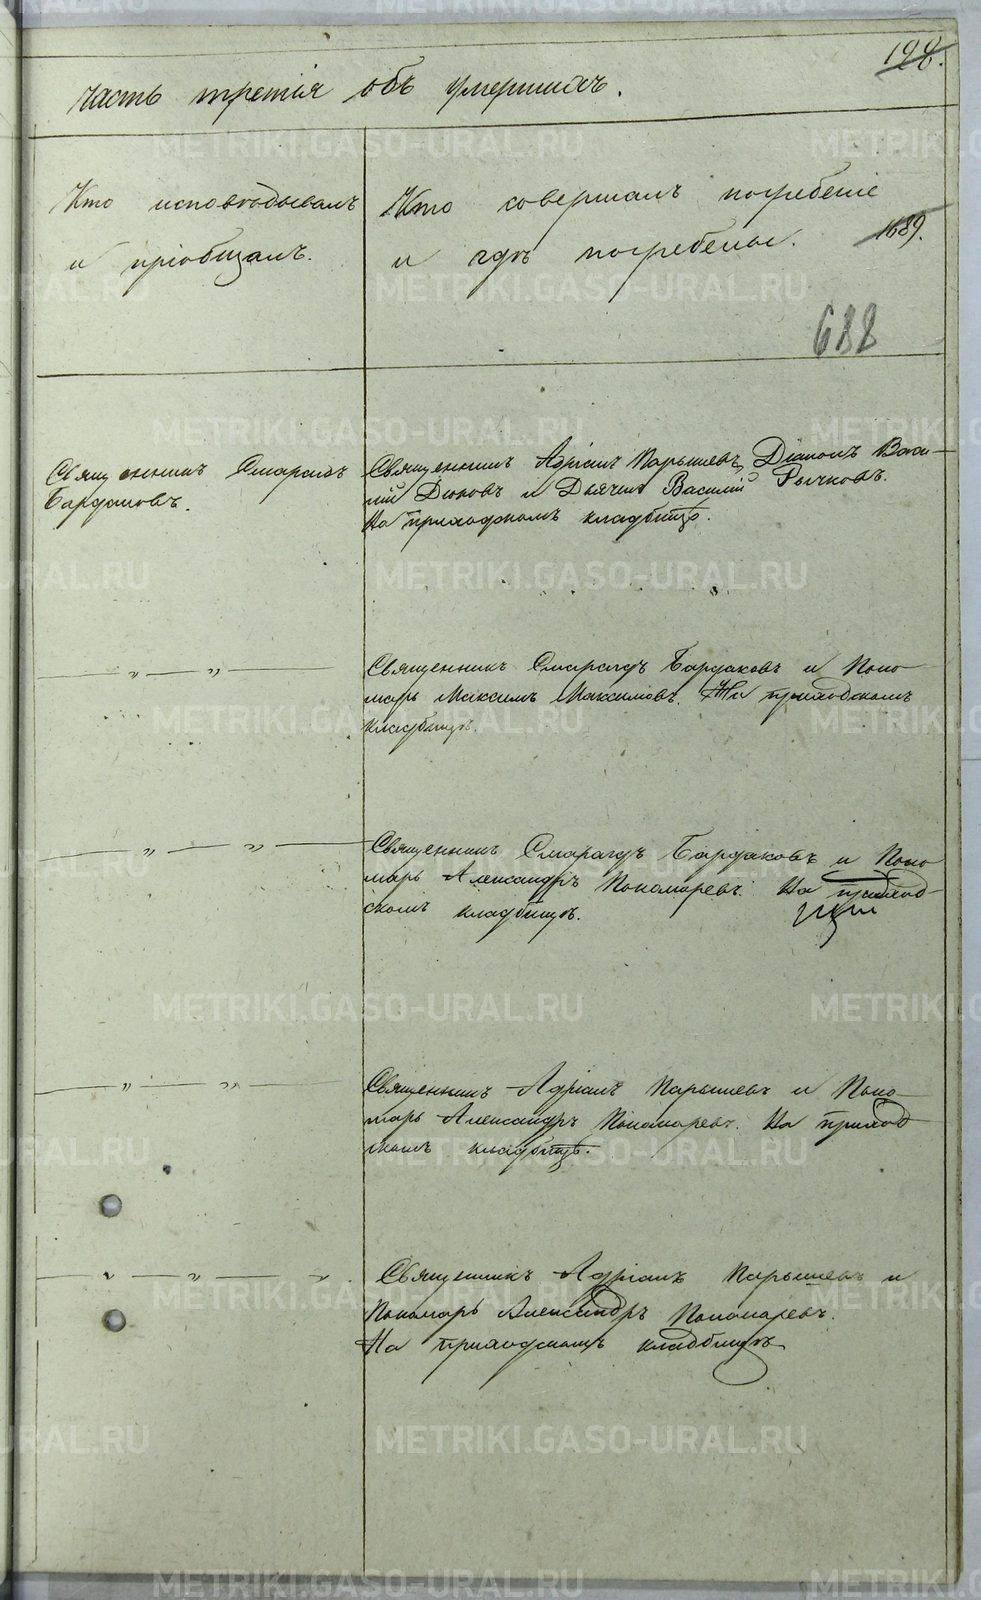 198.
часть третія объ умершихъ.
Кто исповѣдывалъ
и пріобщалъ.
Кто совершалъ погребеніе
и гдѣ погребены.
1689.
688
Священникъ Смарагдъ
Бардаковъ.
Священникъ Адріанъ Парышевъ, Діаконъ Васи-
лій и Дьячекъ Василій Рычковъ.
На приходскомъ кладбищѣ.
— „ — „ —
Священникъ Смарагдъ Бардаковъ и Поно-
марь Максимъ Максимовъ. На приходскомъ
кладбищѣ.
— „ — „ —
Священникъ Смарагдъ Бардаковъ и Поно-
марь Александръ Пономаревъ. На приход-
скомъ кладбищѣ.
— „ — „ —
Священникъ Адріанъ Парышевъ и Поно-
марь Александръ Пономаревъ. На приход
скомъ кладбищѣ.
— „ — „ — „
Священникъ Адріанъ Парышевъ и
Пономарь Александръ Пономаревъ.
На приходскомъ кладбищѣ
METRIKI.GASO-URAL.RU